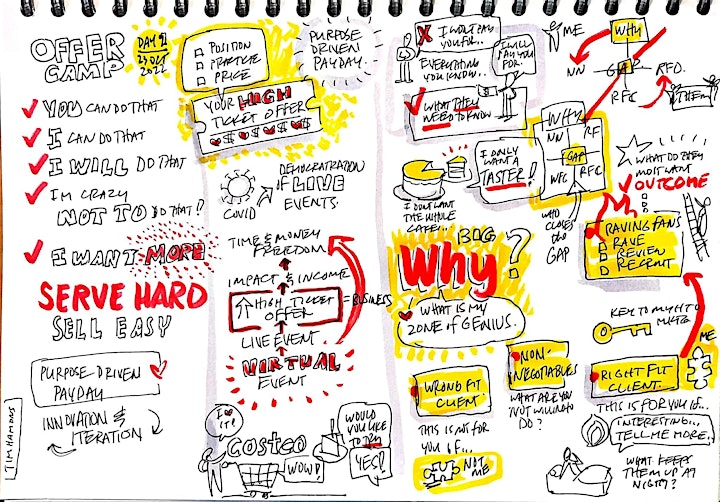 OFFER
CAMP
DAY 2
25 OCT
2022
POSITION
PRACTICE
PRICE
YOUR HIGH
TICKET OFFER
$ $ $ $
PURPOSE
DRIVEN
PAYDAY.
YOU CAN DO THAT
I CAN DO THAT
I WILL DO THAT
I'M CRAZY
NOT TO DO THAT!
I WANT MORE
SERVE HARD
SELL EASY
PURPOSE DRIVEN
PAYDAY
INNOVATION &
ITERATION
TIM HAMONS
COVID
DEMOCRATRATION
OF LIVE
EVENTS.
TIME & MONEY
FREEDOM
IMPACT & INCOME
HIGH TICKET
OFFER
= BUSINESS
LIVE EVENT
VIRTUAL
EVENT
I
IT!
COSTCO
WOW!
WOULD
YOU LIKE
TO TRY
YES!
X I WON'T PAY
YOU FOR..
EVERYTHING
YOU KNOW...
I WILL
PAY YOU
FOR..
WHAT THEY
NEED TO KNOW
I ONLY
WANT A
TASTER!
I DON'T WANT
THE WHOLE
CAKE...
BIG
Why ?
WHAT IS MY
ZONE OF GENIUS.
WRONG FIT
CLIENT
THIS IS NOT FOR
YOU IF...
NOT
ME
NON-
NEGOTIABLES
WHAT ARE YOU
NOT WILLING TO
DO?
ME
WHY
NN
GAP
RFO.
RFC
THEM
WHY
NN
RF
GAP
WFC
RFC
WHO
CLOSES
THE
GAP
WHAT DO THEY
MOST WANT
OUTCOME
RAVING FANS
RAVE
REVIEW
RECRUIT
KEY TO MY HT O
MKTG
ME
RIGHT FIT
CLIENT
THIS IS FOR YOU IF..
INTERESTING...
TELL ME MORE..
WHAT KEEPS
THEM UP AT
NIGHT?